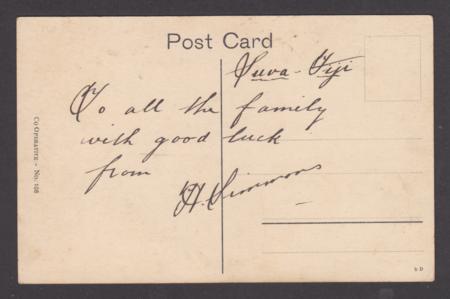 Post Card
Suva - Fiji
To all the family
with good luck
from
H. Simmons
Co-Operative - No. 108
B D